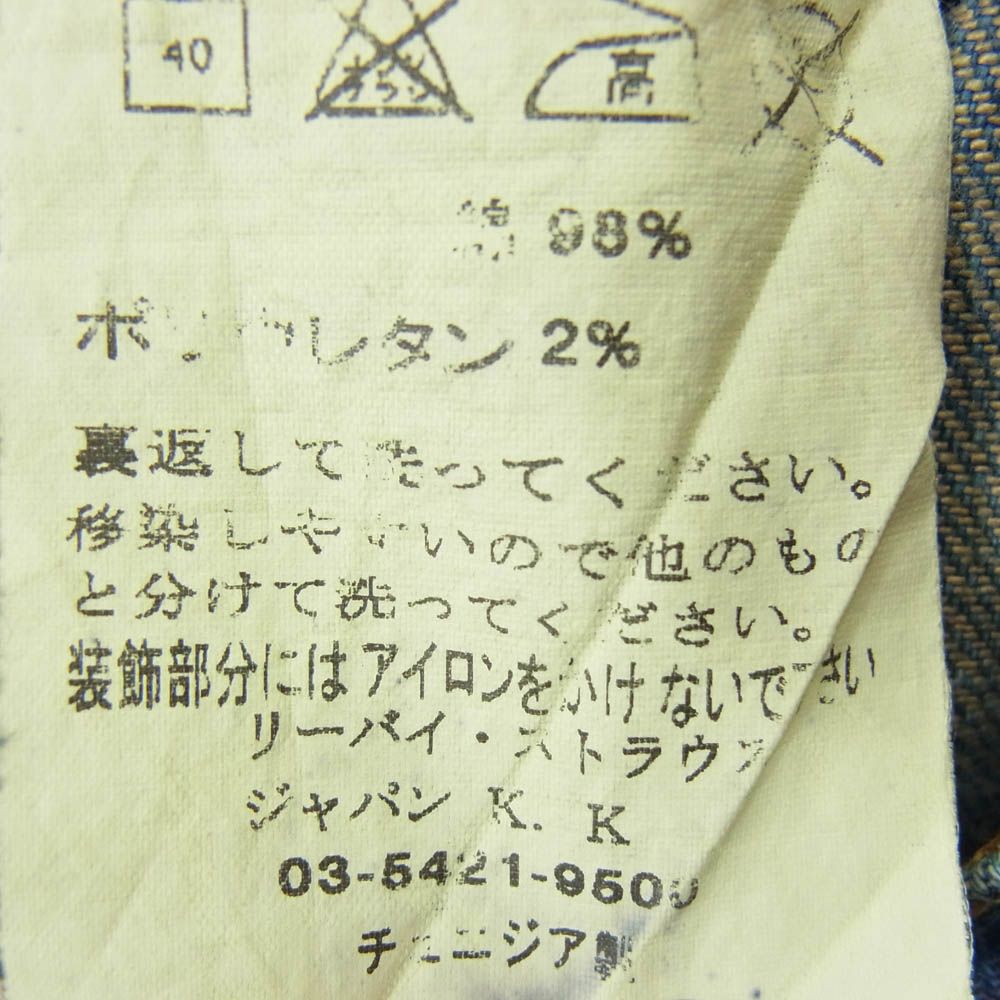 40
高
98%
ポリウレタン 2%
裏返して洗ってください。
移染しやすいので他のもの
と分けて洗ってください。
装飾部分にはアイロンをかけないで下さい
リーバイ・ストラウス
ジャパン K. K
03-5421-950
チュニジア製